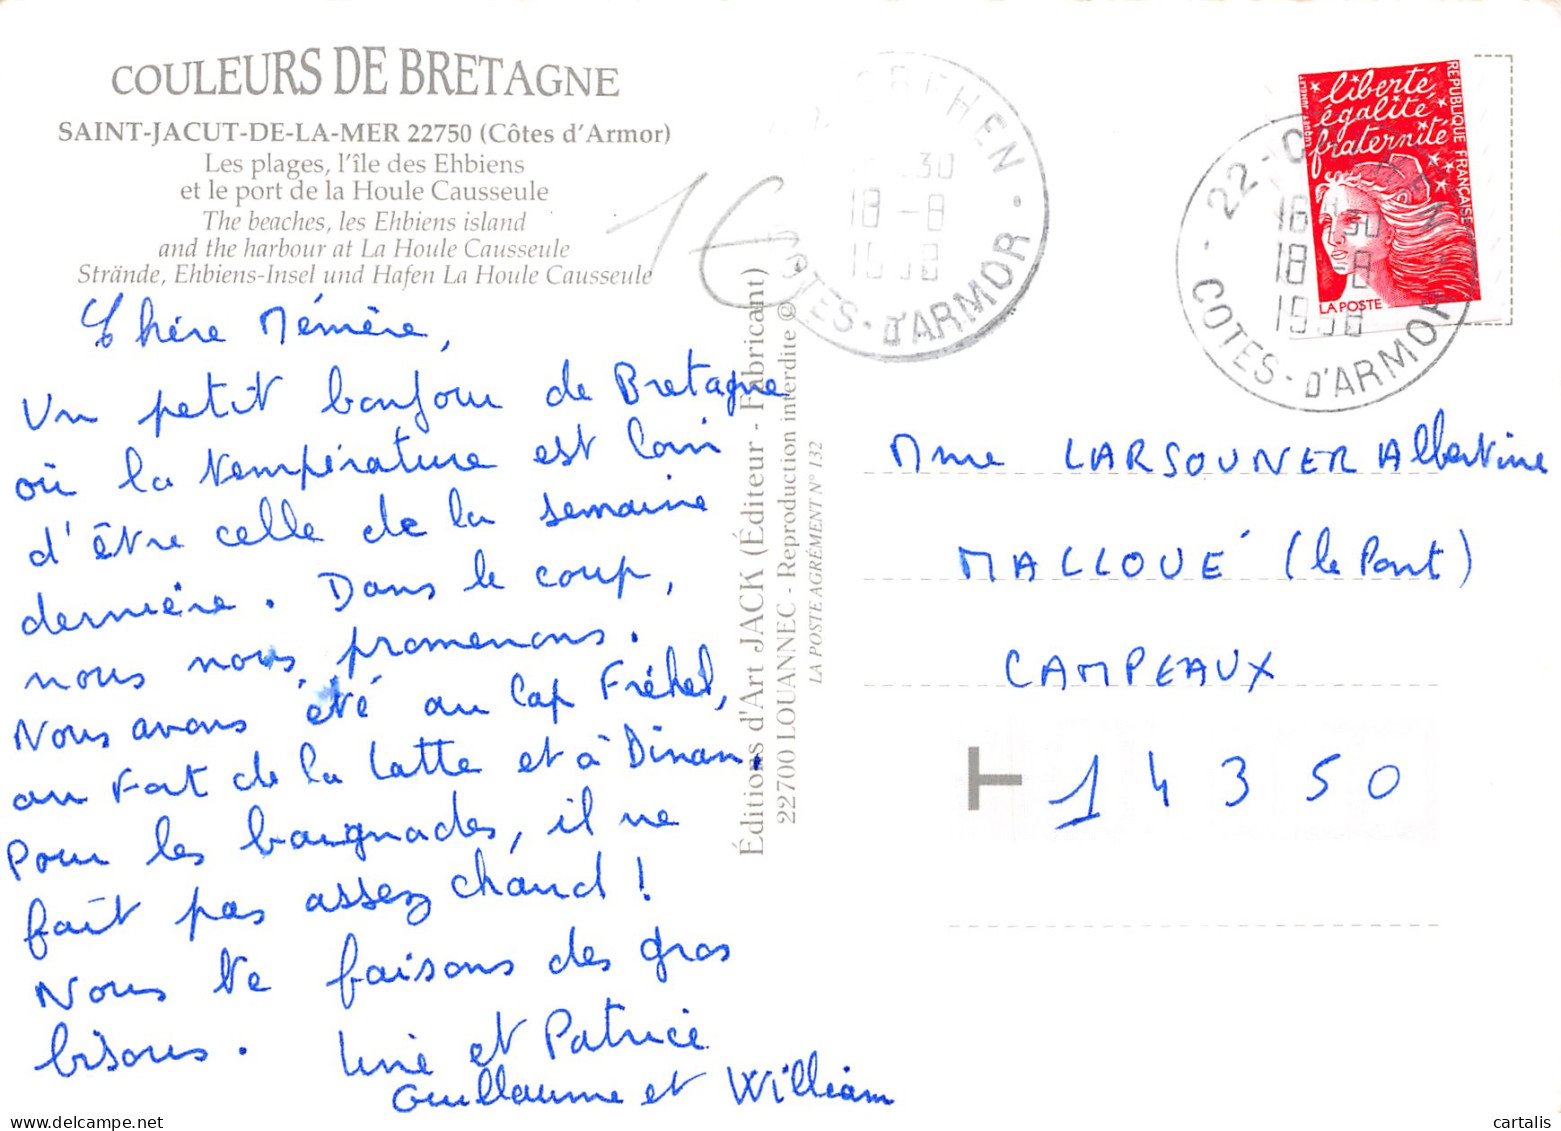 COULEURS DE BRETAGNE
SAINT-JACUT-DE-LA-MER 22750 (Côtes d'Armor)
Les plages, l'île des Ehbiens
et le port de la Houle Causseule
The beaches, les Ehbiens island
and the harbour at La Houle Causseule
Strände, Ehbiens-Insel und Hafen La Houle Causseule
1€
Chère Mémère,
Un petit bonjour de Bretagne
où la température est loin
d'être celle de la semaine
dernière. Dans le coup,
nous nous promenons.
Nous avons été au Cap Fréhel,
au Fort de la Latte et à Dinan.
Pour les baignades, il ne
fait pas assez chaud !
Nous te faisons des gros
bisous. et Patrice
Guillaume et William
Éditions d'Art JACK (Éditeur - Fabricant)
22700 LOUANNEC - Reproduction interdite ©
LA POSTE AGRÉMENT N° 132
18 - 8
COTES - D'ARMOR -
22 -
16 30
18 - 8
1998
COTES - D'ARMOR
liberté
égalité
fraternité
REPUBLIQUE FRANÇAISE
LA POSTE
Mme LARSOUNER Albertine
MALLOUÉ (le Pont)
CAMPEAUX
T
14350
cartalis
www.delcampe.net